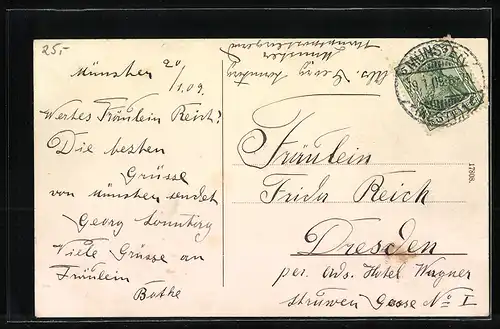 25.-
Münster 20/1.09.
Wertes Fräulein Reich!
Die besten
Grüsse
von Münster sendet
Georg Sonntag
Viele Grüsse an
Fräulein
Bothe
Abs. Georg Sonntag
Münster
Fräulein
Frida Reich
Dresden
per. ads. Hotel Wagner
struwen Gasse No I
17808.